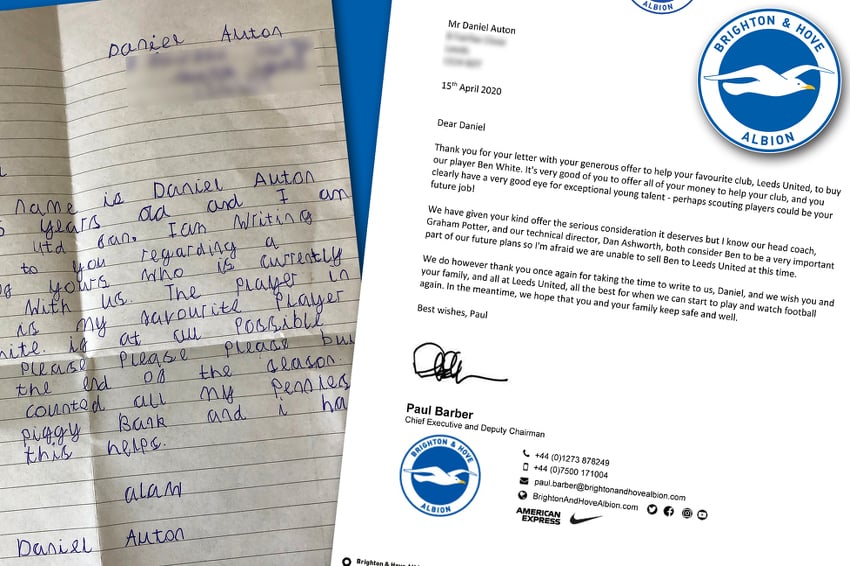 Daniel Auton
name is Daniel Auton
years old and I am
utd fan. I an writing
to you regarding a
yours who is currently
with us. The player in
is my favourite player
if at all possible
Please Please Please
the end of the season.
counted all my Pennies
piggy Bank and i ha
this helps.
alaw
Daniel Auton
ALBION
Mr Daniel Auton
15th April 2020
Dear Daniel
Thank you for your letter with your generous offer to help your favourite club, Leeds United, to buy
our player Ben White. It's very good of you to offer all of your money to help your club, and you
clearly have a very good eye for exceptional young talent - perhaps scouting players could be your
future job!
We have given your kind offer the serious consideration it deserves but I know our head coach,
Graham Potter, and our technical director, Dan Ashworth, both consider Ben to be a very important
part of our future plans so I'm afraid we are unable to sell Ben to Leeds United at this time.
We do however thank you once again for taking the time to write to us, Daniel, and we wish you and
your family, and all at Leeds United, all the best for when we can start to play and watch football
again. In the meantime, we hope that you and your family keep safe and well.
Best wishes, Paul
Paul Barber
Chief Executive and Deputy Chairman
BRIGHTON & HOVE
ALBION
+44 (0)1273 878249
+44 (0)7500 171004
paul.barber@brightonandhovealbion.com
BrightonAndHoveAlbion.com
AMERICAN
EXPRESS
Brighton & Hove Albion
BRIGHTON & HOVE
ALBION